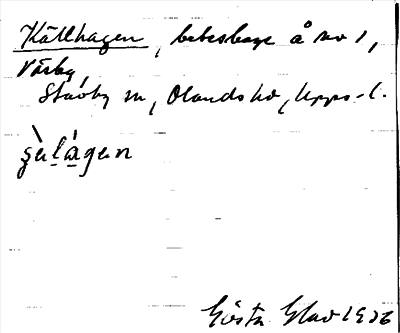 Källhagen, beteshage å no 1,
Väsby,
Stavby sn, Olands hd, Upps. l.
şὲlágεn
Gösta Glav 1936